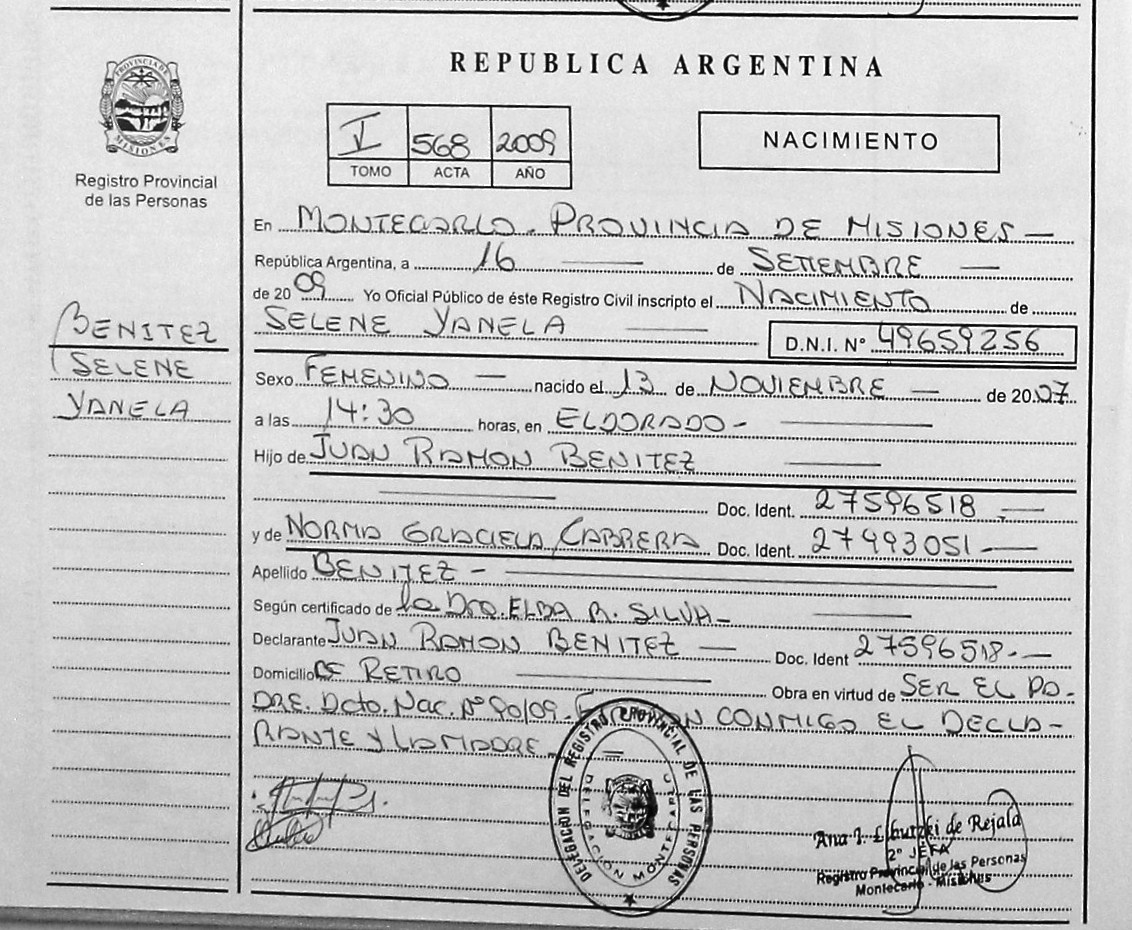 REPUBLICA ARGENTINA
PROVINCIA DE
MISIONES
Registro Provincial
de las Personas
V 568 2009
TOMO ACTA AÑO
NACIMIENTO
En MONTECARLO. PROVINCIA DE MISIONES —
República Argentina, a 16 — de SETIEMBRE —
de 20 09 Yo Oficial Público de éste Registro Civil inscripto el NACIMIENTO de
SELENE YANELA — D.N.I. N° 49659256
BENITEZ
SELENE
YANELA
Sexo FEMENINO — nacido el 13 de NOVIEMBRE — de 20 07
a las 14:30 horas, en ELDORADO - —
Hijo de JUAN RAMON BENITEZ —
— Doc. Ident. 27596518 —
y de NORMA GRACIELA CABRERA Doc. Ident. 27993051 . —
Apellido BENITEZ - —
Según certificado de la Dra. ELBA R. SILVA — —
Declarante JUAN RAMON BENITEZ — Doc. Ident 27596518 . —
Domicilio DE RETIRO — Obra en virtud de SER EL PA-
DRE. Dcto. Nac. N° 90/09. CONMIGO EL DECLA-
RANTE Y LA MADRE —
DELEGACION DEL REGISTRO PROVINCIAL DE LAS PERSONAS
DELEGACIÓN MONTECARLO
Ana I. de Rejala
2° JEFA
Registro Provincial de las Personas
Montecarlo - Misiones